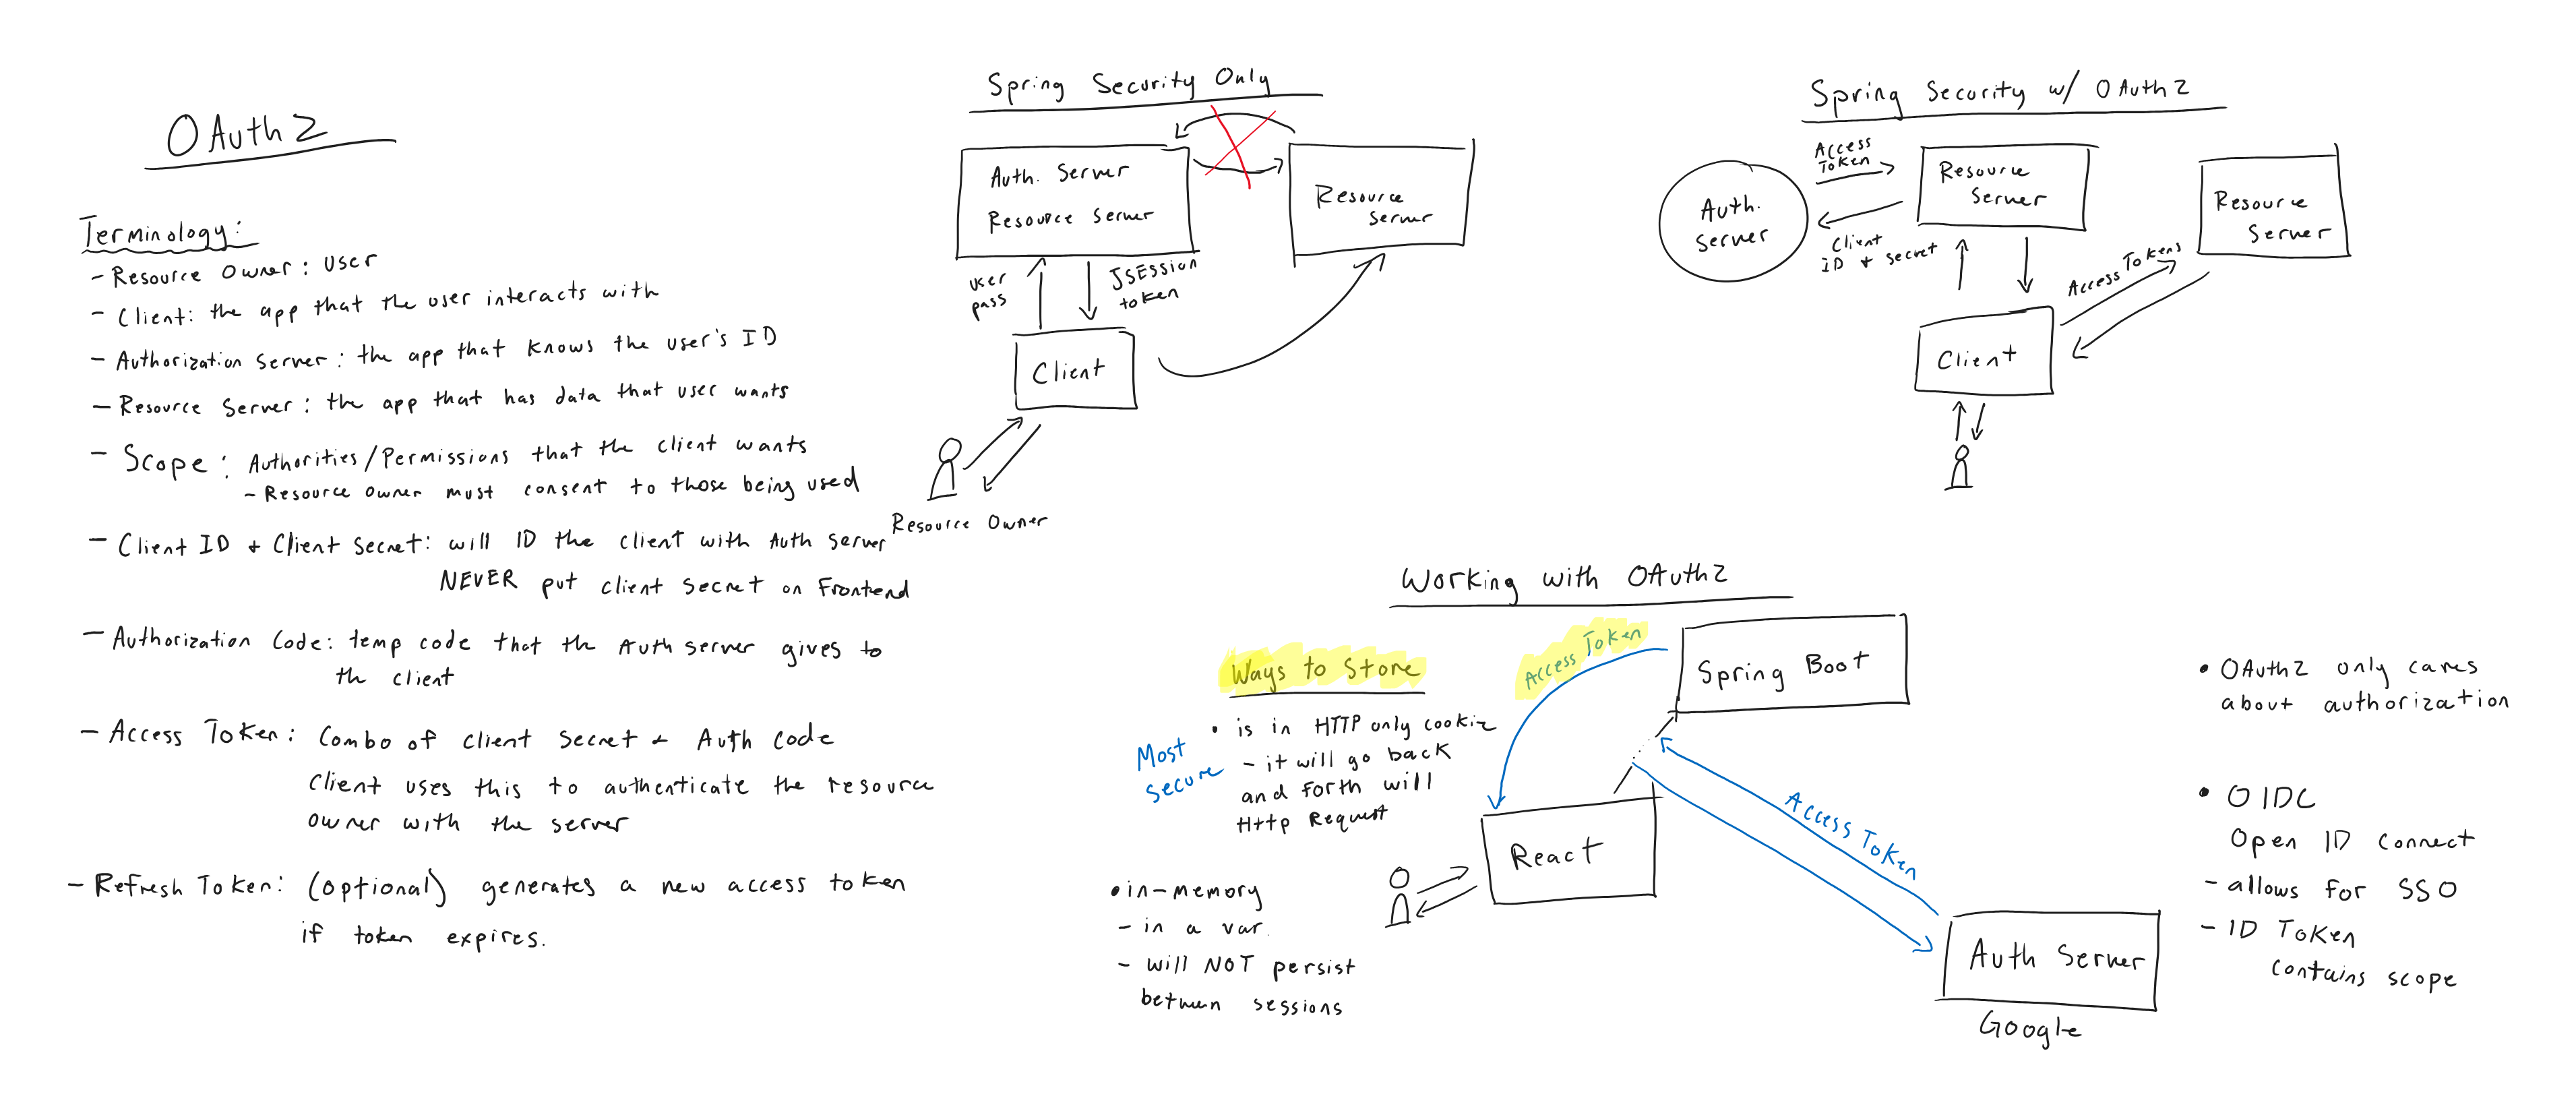 OAuth2
Terminology:
- Resource Owner: User
- Client: the app that the user interacts with
- Authorization Server: the app that knows the user's ID
- Resource Server: the app that has data that user wants
- Scope: Authorities/Permissions that the client wants
- Resource owner must consent to those being used
- Client ID + Client Secret: will ID the client with Auth Server
NEVER put client secret on Frontend
- Authorization Code: temp code that the Auth server gives to
the client
- Access Token: Combo of client secret + Auth code
Client uses this to authenticate the resource
owner with the server
- Refresh Token: (optional) generates a new access token
if token expires.
Spring Security Only
Auth. Server
Resource Server
Resource
Server
user
pass
JSESSion
token
Client
Resource Owner
Spring Security w/ OAuth2
Auth.
Server
Access
Token
Client
ID + Secret
Resource
Server
Access Tokens
Resource
Server
Client
Working with OAuth2
Ways to Store
Most
Secure
• is in HTTP only cookie
- it will go back
and forth will
Http Request
• in-memory
- in a var.
- will NOT persist
between sessions
Access Token
Spring Boot
React
Access Token
Auth Server
Google
• OAuth2 only cares
about authorization
• OIDC
Open ID Connect
- allows for SSO
- ID Token
contains scope